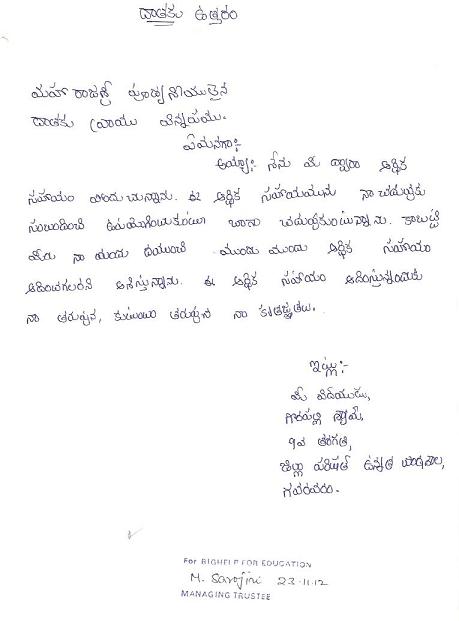 దాతకు ఉత్తరం
మహా రాజశ్రీ పూజ్యనీయులైన
దాతకు వ్రాయు విన్నపము.
ఏమనగా:-
అయ్యా! నేను మీ ద్వారా ఆర్థిక
సహాయం పొందుచున్నాను. ఈ ఆర్థిక సహాయమును నా చదువుకు
సంబంధించి ఉపయోగించుకుంటూ బాగా చదువుకుంటున్నాను. కాబట్టి
మీరు నా యందు దయుంచి ముందు ముందు ఆర్థిక సహాయం
అందించగలరని ఆశిస్తున్నాను. ఈ ఆర్థిక సహాయం అందిస్తున్నందుకు
నా తరుపున, కుటుంబం తరుపున నా కృతజ్ఞతలు.
ఇట్లు:-
మీ విధేయుడు,
శ్యామ్,
9వ తరగతి,
జిల్లా పరిషత్ ఉన్నత పాఠశాల,
గవరవరం.
For BIGHELP FOR EDUCATION
M. Sarojini 23-11-12
MANAGING TRUSTEE